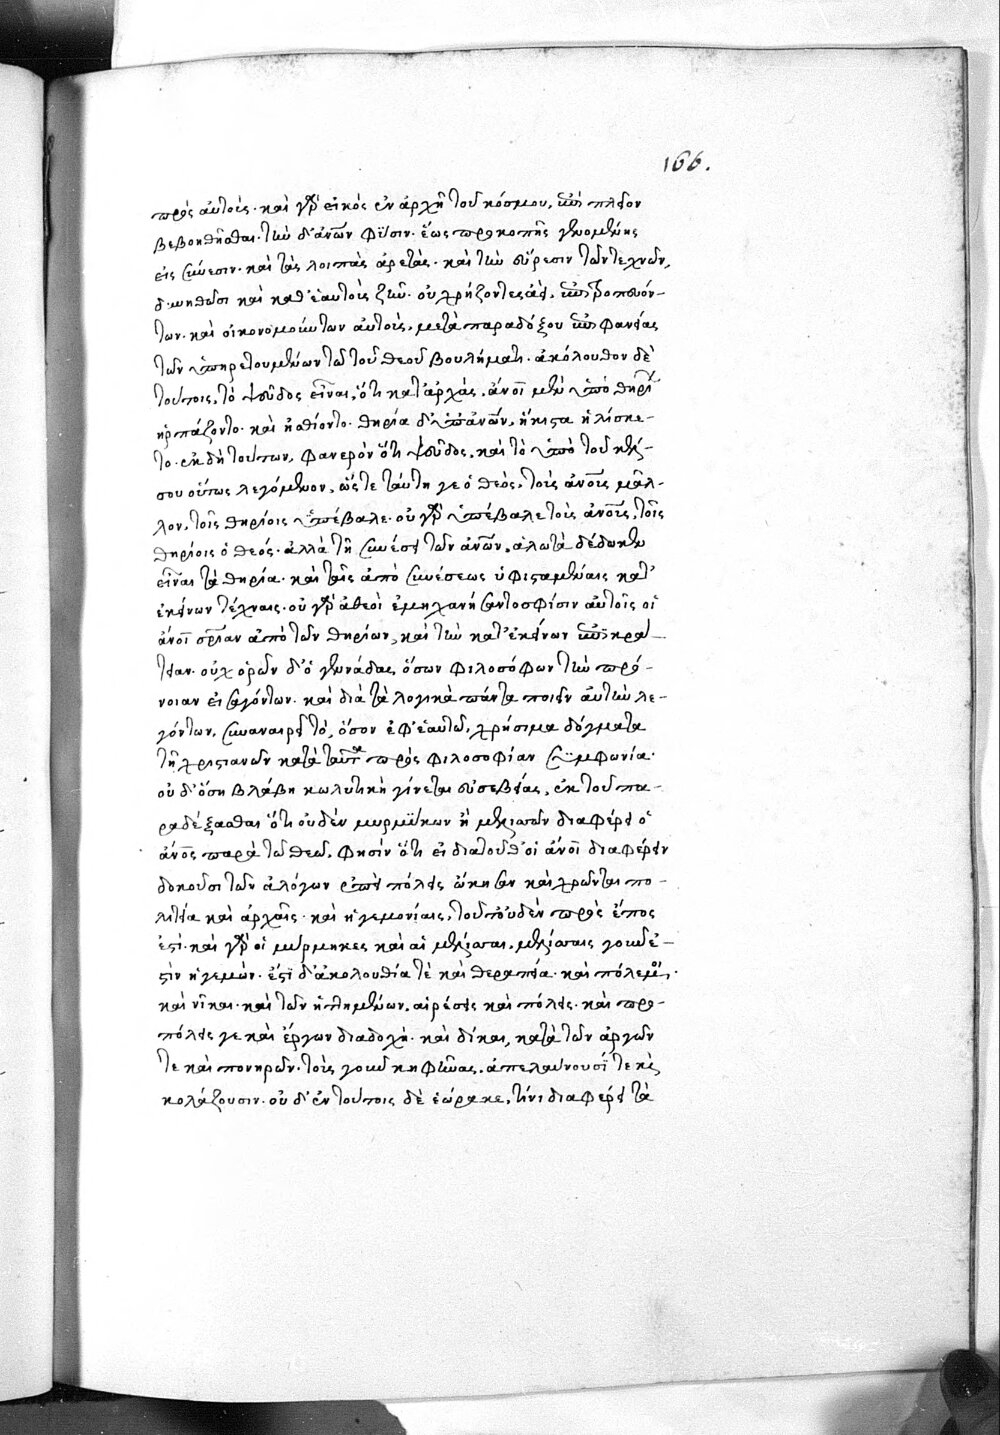 166.
πρὸς αὐτούς· καὶ γὰρ εἰκὸς ἐν ἀρχῇ τοῦ κόσμου, ἐπὶ πλεῖον
βεβοηθῆσθαι τὴν τ̅ ἀν̅ων φύσιν· ἕως προκοπῆς γενομένης
εἰς σύνεσιν· καὶ τὰς λοιπὰς ἀρετάς· καὶ τὴν εὕρεσιν τῶν τεχνῶν,
δυνηθῶσι καὶ καθ' ἑαυτοὺς ζῆν· οὐ χρῄζοντες ἀεὶ, ἐπιτροπευόν-
των· καὶ οἰκονομούντων αὐτούς, μετὰ παραδόξου ἐπιφανείας
τῶν ὑπηρετουμένων τῶ τοῦ θεοῦ βουλήματι· ἀκόλουθον δὲ
τούτοις, τὸ ψεῦδος εἶναι, ὅτι κατ' ἀρχάς, ἄνο̅ι μὲν ὑπὸ θηρίων
ἡρπάζοντο· καὶ ἠσθίοντο· θηρία δ' ὑπ' ἀν̅ων, ἥκιστα ἡλίσκε-
το· ἐκ δὴ τούτων, φανερὸν ὅτι ψεῦδος, καὶ τὸ ὑπὸ τοῦ κέλ-
σου οὕτως λεγόμενον, ὥστε ταύτη γε ὁ θεὸς, τοὺς ἀν̅ους μᾶλ-
λον, τοῖς θηρίοις ὑπέβαλε· οὐ γὰρ ὑπέβαλε τοὺς ἀν̅ους, τοῖς
θηρίοις ὁ θεός· ἀλλὰ τῇ συνέσει τῶν ἀν̅ων, ἁλωτὰ δέδωκεν
εἶναι τὰ θηρία· καὶ ταῖς ἀπὸ συνέσεως ὑφισταμέναις κατ'
ἐκείνων τέχναις· οὐ γὰρ ἀθεεὶ ἐμηχανήσαντο σφίσιν αὐτοῖς οἱ
ἄνο̅ι σ̅ριαν ἀπὸ τῶν θηρίων, καὶ τὴν κατ' ἐκείνων ἐπικρά-
τειαν· οὐχ ὁρῶν δ' ὁ γεννάδας, ὅσων φιλοσόφων τὴν πρό-
νοιαν εἰσαγόντων· καὶ διὰ τὰ λογικὰ πάντα ποιεῖν αὐτὴν λε-
γόντων, συναναιρεῖ τὸ, ὅσον ἐφ' ἑαυτῶ, χρήσιμα δόγματα
τῇ χριστιανῶν κατὰ ταῦτα πρὸς φιλοσοφίαν συμφωνία·
οὐδ' ὅση βλάβη κωλυτικὴ γίνεται εὐσεβείας, ἐκ τοῦ πα-
ραδέξασθαι ὅτι οὐδὲν μυρμήκων ἢ μελισσῶν διαφέρει ὁ
ἄνο̅ς παρὰ τῶ θεῶ. φησὶν ὅτι εἰ διὰ τοῦθ' οἱ ἄνο̅ι διαφέρειν
δοκοῦσι τῶν ἀλόγων ἐπεὶ πόλεις ᾤκησαν καὶ χρῶνται πο-
λιτεία καὶ ἀρχαῖς· καὶ ἡγεμονίαις, τοῦτ' οὐδὲν πρὸς ἔπος
ἐστί· καὶ γὰρ οἱ μύρμηκες καὶ αἱ μέλισσαι, μελίσσαις γοῦν ἐ-
στὶν ἡγεμών· ἔστι δ' ἀκολουθία τὲ καὶ θεραπεία· καὶ πόλεμοι·
καὶ νῖκαι· καὶ τῶν ἡττημένων, αἱρέσεις καὶ πόλεις· καὶ προ-
πόλεις γε καὶ ἔργων διαδοχή· καὶ δίκαι, κατὰ τῶν ἀργῶν
τε καὶ πονηρῶν· τοὺς γοῦν κηφῆνας, ἀπελαύνουσί τε καὶ
κολάζουσιν· οὐδ' ἐν τούτοις δὲ ἑώρακε, τίνι διαφέρει τὰ